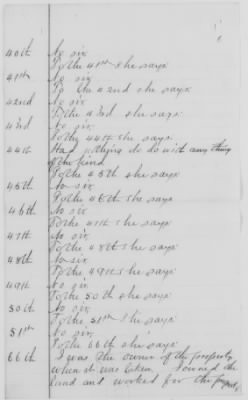 40th No sir
To the 41st she says
41st No sir
To the 42nd she says
42nd No sir
To the 43d she says
43d No sir
To the 44th she says
44th Had nothing to do with any thing
of the kind
To the 45th she says
45th No sir
To the 46th she says
46th No sir
To the 47th she says
47th No sir
To the 48th she says
48th No sir
To the 49th she says
49th No sir
To the 50th she says
50th No sir
To the 51st she says
51st No sir
To the 66th she says
66th I was the owner of the property
when it was taken I owned the
land and worked for the property